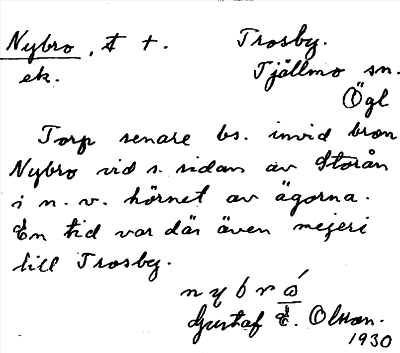 Nybro, t +. Trosby.
ek. Tjällmo sn.
Ögl
Torp senare bs. invid bron
Nybro vid s. sidan av Storån
i n. v. hörnet av ägorna.
En tid var där även mejeri
till Trosby.
nybró
Gustaf E. Olsson.
1930